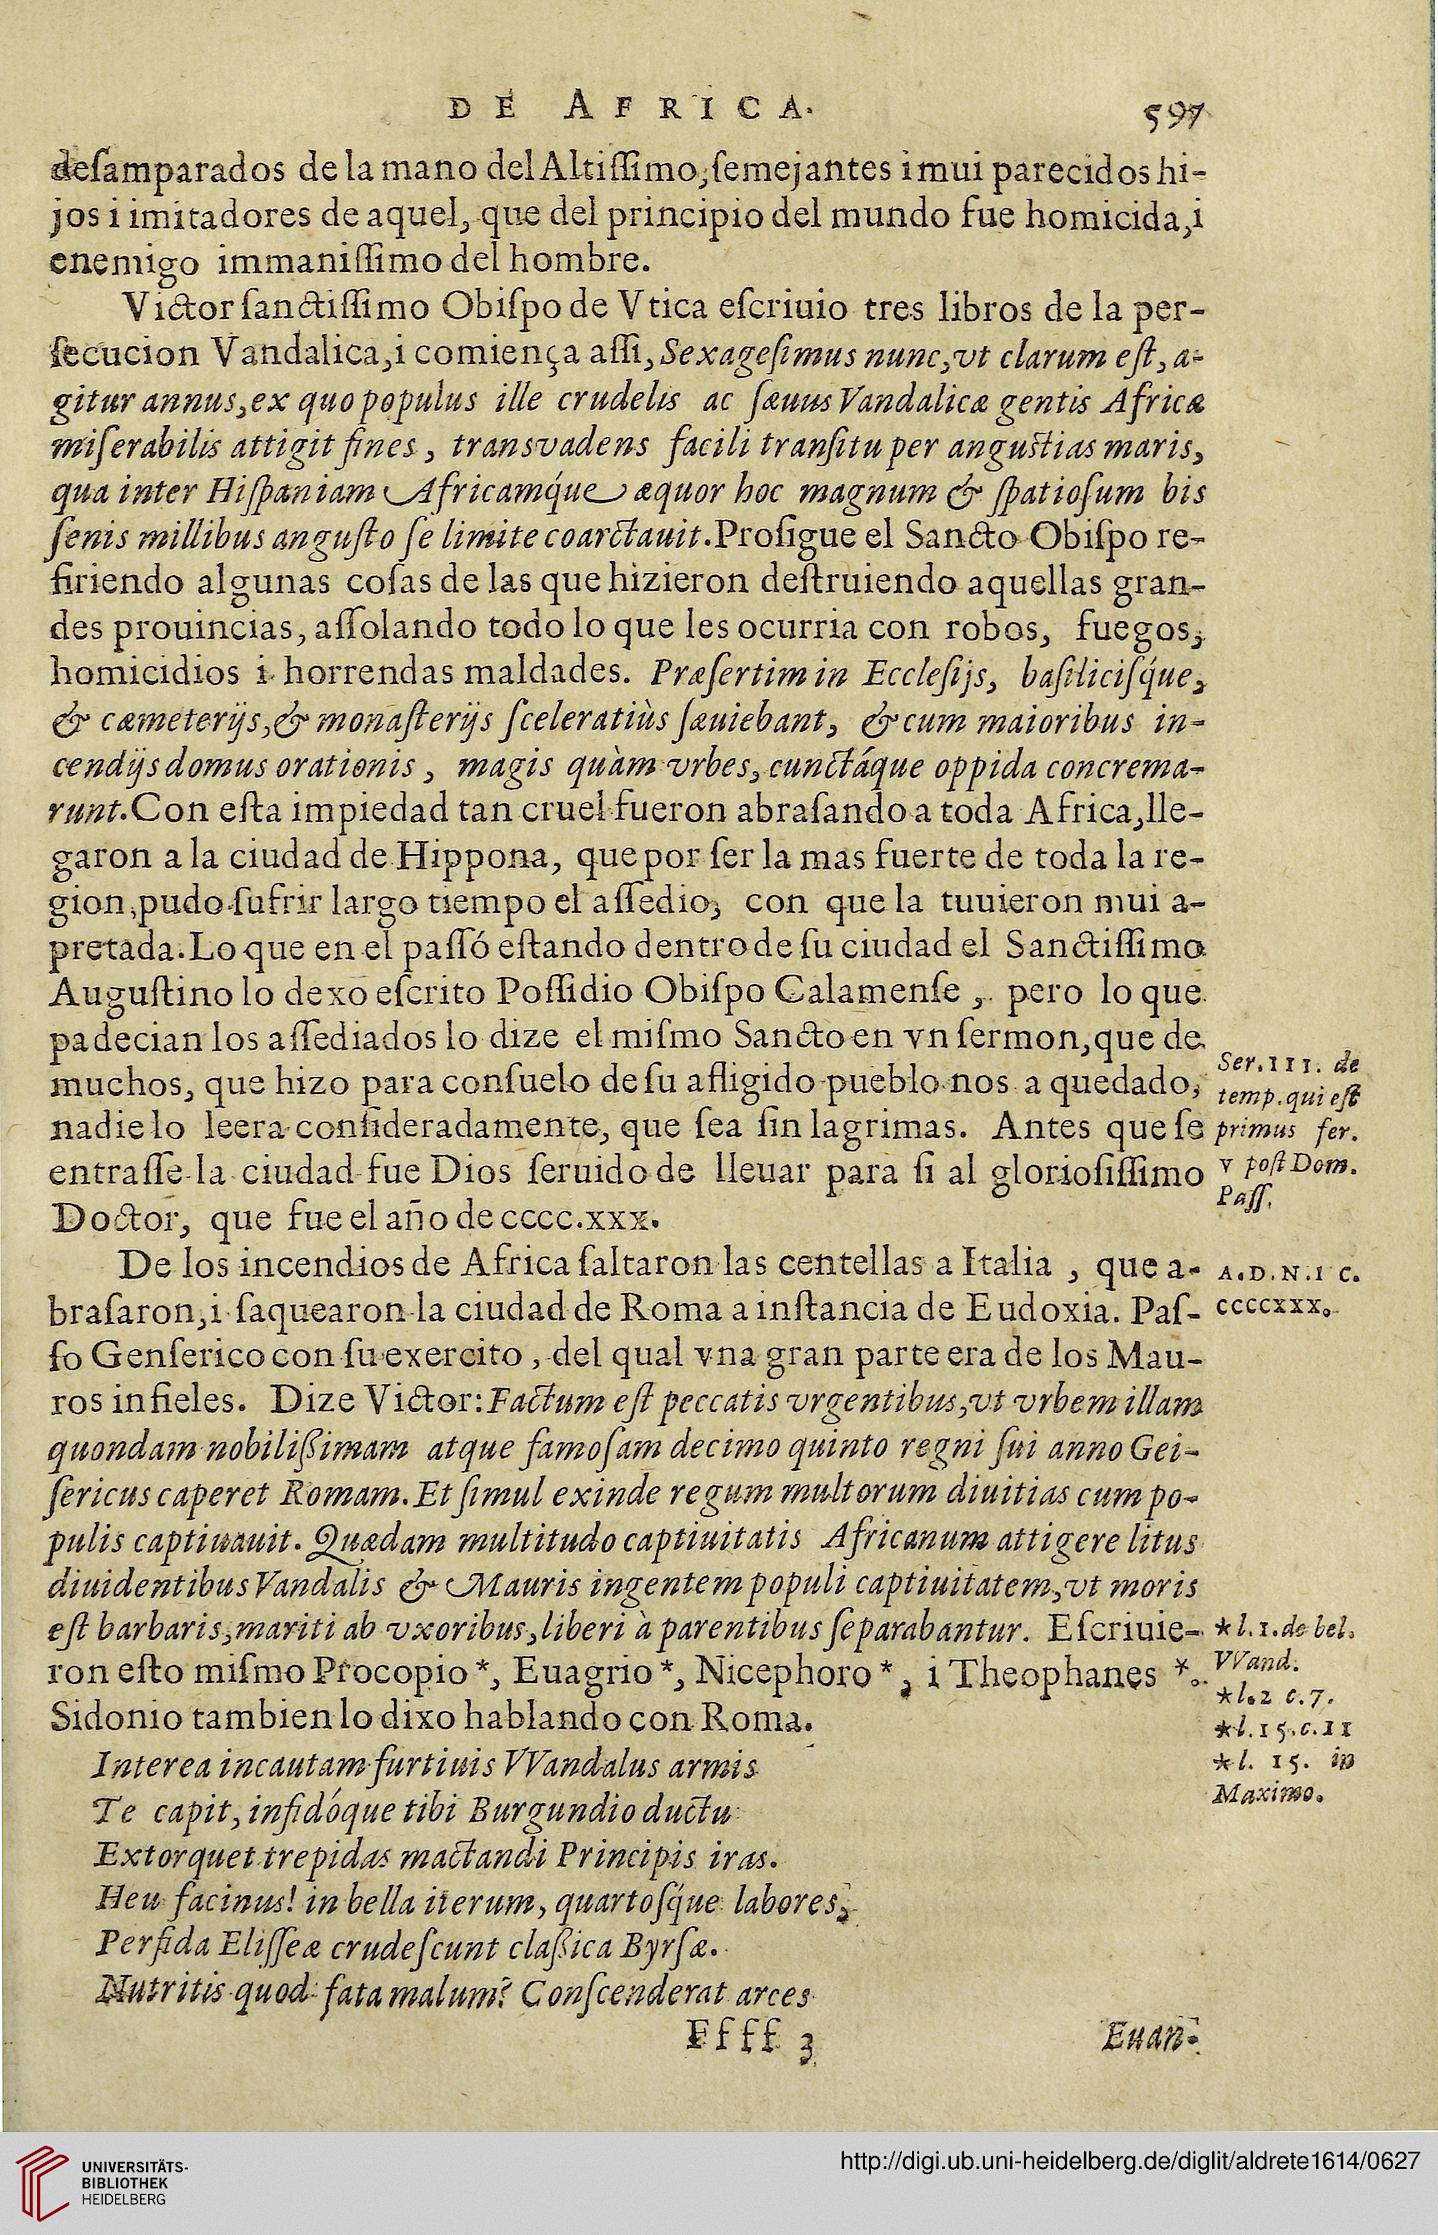 DE AFRICA. 597
deſamparados de la mano del Altiſſimo, ſemejantes i mui parecidos hi-
jos i imitadores de aquel, que del principio del mundo fue homicida, i
enemigo immaniſſimo del hombre.
Victor ſanctiſſimo Obiſpo de Vtica eſcriuio tres libros de la per-
ſecucion Vandalica, i comiença aſſi, Sexageſimus nunc, vt clarum eſt, a-
gitur annus, ex quo populus ille crudelis ac ſæuus Vandalicæ gentis Africæ
miſerabilis attigit fines, transvadens facili tranſitu per anguſtias maris,
qua inter Hiſpaniam Africamq́ue æquor hoc magnum & ſpatioſum bis
ſenis millibus anguſto ſe limite coarctauit. Proſigue el Sancto Obiſpo re-
firiendo algunas coſas de las que hizieron deſtruiendo aquellas gran-
des prouincias, aſſolando todo lo que les ocurria con robos, fuegos,
homicidios i horrendas maldades. Præſertim in Eccleſijs, baſiliciſq́ue,
& cæmeterijs, & monaſterijs ſceleratiùs ſæuiebant, & cum maioribus in-
cendijs domus orationis, magis quàm vrbes, cunctáque oppida concrema-
runt. Con eſta impiedad tan cruel fueron abraſando a toda Africa, lle-
garon a la ciudad de Hippona, que por ſer la mas fuerte de toda la re-
gion, pudo ſufrir largo tiempo el aſſedio, con que la tuuieron mui a-
pretada. Lo que en el paſſó eſtando dentro de ſu ciudad el Sanctiſſimo
Auguſtino lo dexo eſcrito Poſſidio Obiſpo Calamenſe, pero lo que
padecian los aſſediados lo dize el miſmo Sancto en vn ſermon, que de
muchos, que hizo para conſuelo de ſu afligido pueblo nos a quedado,
nadie lo leera conſideradamente, que ſea ſin lagrimas. Antes que ſe
entraſſe la ciudad fue Dios ſeruido de lleuar para ſi al glorioſiſſimo
Doctor, que fue el año de cccc.xxx.
Ser. III. de
temp. qui eſt
primus fer.
v poſt Dom.
Paſſ.
De los incendios de Africa ſaltaron las centellas a Italia, que a-
braſaron, i ſaquearon la ciudad de Roma a inſtancia de Eudoxia. Paſ-
ſo Genſerico con ſu exercito, del qual vna gran parte era de los Mau-
ros infieles. Dize Victor: Factum eſt peccatis vrgentibus, vt vrbem illam
quondam nobilißimam atque famoſam decimo quinto regni ſui anno Gei-
ſericus caperet Romam. Et ſimul exinde regum multorum diuitias cum po-
pulis captiuauit. Quædam multitudo captiuitatis Africanum attigere litus
diuidentibus Vandalis & Mauris ingentem populi captiuitatem, vt moris
eſt barbaris, mariti ab vxoribus, liberi à parentibus ſeparabantur. Eſcriuie-
ron eſto miſmo Procopio *, Euagrio *, Nicephoro *, i Theophanes *.
Sidonio tambien lo dixo hablando con Roma.
A.D.N.I C.
ccccxxx.
* l. 1. de bel.
VVand.
* l. 2 c. 7.
* l. 15. c. 11
* l. 15. in
Maximo.
Interea incautam furtiuis VVandalus armis
Te capit, infidóque tibi Burgundio ductu
Extorquet trepidas mactandi Principis iras.
Heu facinus! in bella iterum, quartoſq́ue labores,
Perfida Eliſſeæ crudeſcunt claßica Byrſæ.
Nutritis quod fata malum? Conſcenderat arces
Ffff 3 Euan-
UNIVERSITÄTS-
BIBLIOTHEK
HEIDELBERG
http://digi.ub.uni-heidelberg.de/diglit/aldrete1614/0627